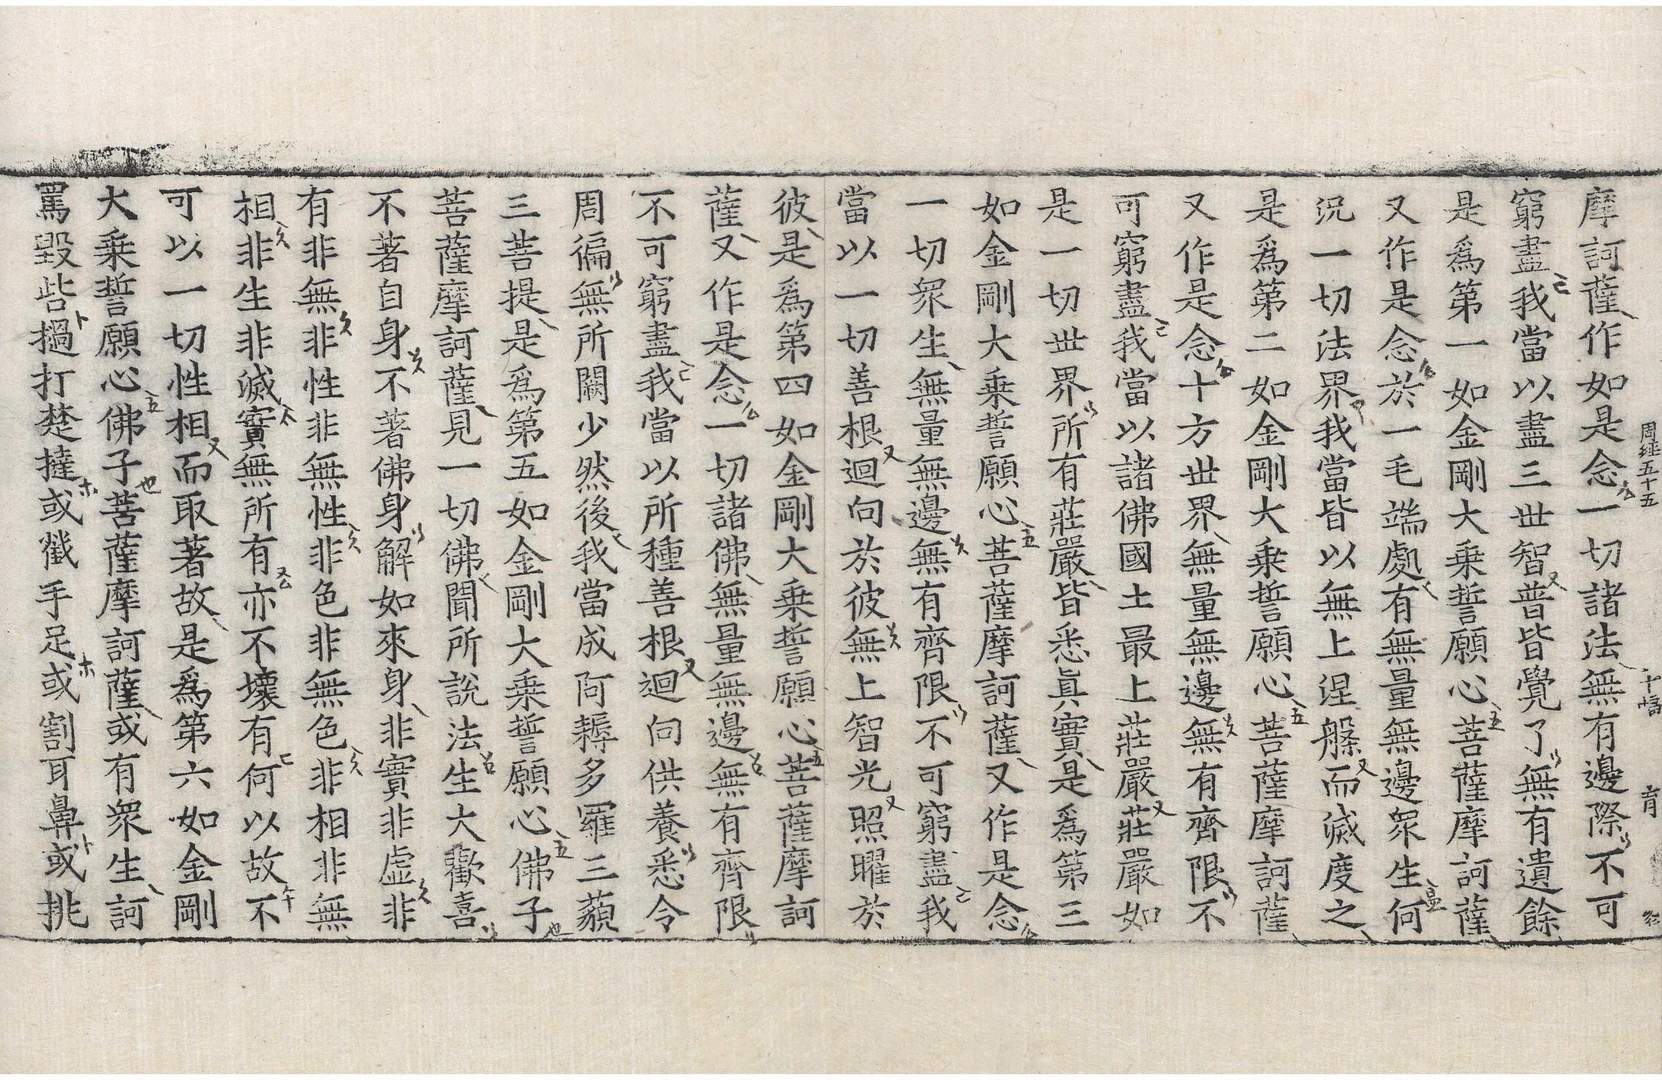 周經五十五
摩訶薩作如是念一切諸法無有邊際不可
窮盡我當以盡三世智普皆覺了無有遺餘
是爲第一如金剛大乘誓願心菩薩摩訶薩
又作是念於一毛端處有無量無邊衆生何
況一切法界我當皆以無上涅槃而滅度之
是爲第二如金剛大乘誓願心菩薩摩訶薩
又作是念十方世界無量無邊無有齊限不
可窮盡我當以諸佛國土最上莊嚴莊嚴如
是一切世界所有莊嚴皆悉眞實是爲第三
如金剛大乘誓願心菩薩摩訶薩又作是念
一切衆生無量無邊無有齊限不可窮盡我
當以一切善根迴向於彼無上智光照曜於
彼是爲第四如金剛大乘誓願心菩薩摩訶
薩又作是念一切諸佛無量無邊無有齊限
不可窮盡我當以所種善根迴向供養悉令
周徧無所闕少然後我當成阿耨多羅三藐
三菩提是爲第五如金剛大乘誓願心佛子
菩薩摩訶薩見一切佛聞所說法生大歡喜
不著自身不著佛身解如來身非實非虛非
有非無非性非無性非色非無色非相非無
相非生非滅實無所有亦不壞有何以故不
可以一切性相而取著故是爲第六如金剛
大乘誓願心佛子菩薩摩訶薩或有衆生訶
罵毀呰撾打楚撻或截手足或割耳鼻或挑